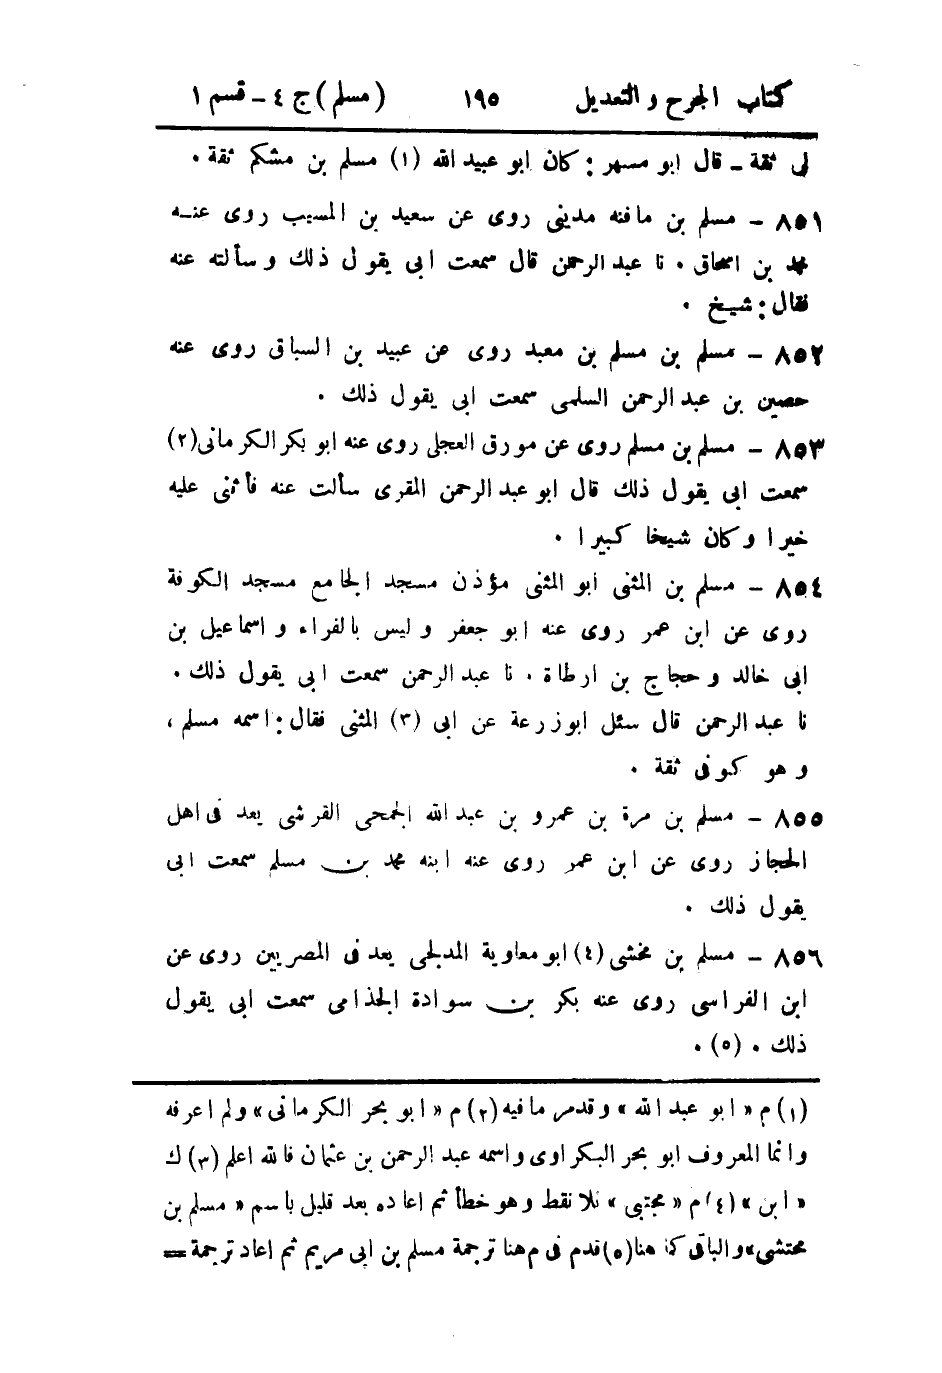 كتاب الجرح والتعديل ١٩٥ (مسلم) ج ٤ - قسم ١
لى ثقة - قال ابو مسهر: كان ابو عبيد الله (١) مسلم بن مشكم ثقة .
٨٥١ - مسلم بن مافنه مدينى روى عن سعيد بن المسيب روى عنه
محمد بن اسحاق . نا عبد الرحمن قال سمعت ابى يقول ذلك وسألته عنه
فقال: شيخ .
٨٥٢ - مسلم بن مسلم بن معبد روى عن عبيد بن السباق روى عنه
حصين بن عبد الرحمن السلمى سمعت ابى يقول ذلك .
٨٥٣ - مسلم بن مسلم روى عن مورق العجلى روى عنه ابو بكر الكرمانى (٢)
سمعت ابى يقول ذلك قال ابو عبد الرحمن المقرى سألت عنه فأثنى عليه
خيرا وكان شيخا كبيرا .
٨٥٤ - مسلم بن المثنى ابو المثنى مؤذن مسجد الجامع مسجد الكوفة
روى عن ابن عمر روى عنه ابو جعفر وليس بالفراء واسماعيل بن
ابى خالد وحجاج بن ارطاة . نا عبد الرحمن سمعت ابى يقول ذلك .
نا عبد الرحمن قال سئل ابو زرعة عن ابى (٣) المثنى فقال: اسمه مسلم ،
وهو كوفى ثقة .
٨٥٥ - مسلم بن مرة بن عمرو بن عبد الله الجمحى القرشى يعد فى اهل
الحجاز روى عن ابن عمر روى عنه ابنه محمد بن مسلم سمعت ابى
يقول ذلك .
٨٥٦ - مسلم بن مخشى (٤) ابو معاوية المدلجى يعد فى المصريين روى عن
ابن الفراسى روى عنه بكر بن سوادة الجذامى سمعت ابى يقول
ذلك . (٥) .
(١) م « ابو عبد الله » وقد مر ما فيه (٢) م « ابو بحر الكرمانى » ولم اعرفه
وانما المعروف ابو بحر البكراوى واسمه عبد الرحمن بن عثمان فالله اعلم (٣) ك
« ابن » (٤) م « مجتبى » بلا نقط وهو خطأ ثم اعاده بعد قليل باسم « مسلم بن
محتشى » والباقى كما هنا (٥) قدم فى م هنا ترجمة مسلم بن ابى مريم ثم اعاد ترجمة =